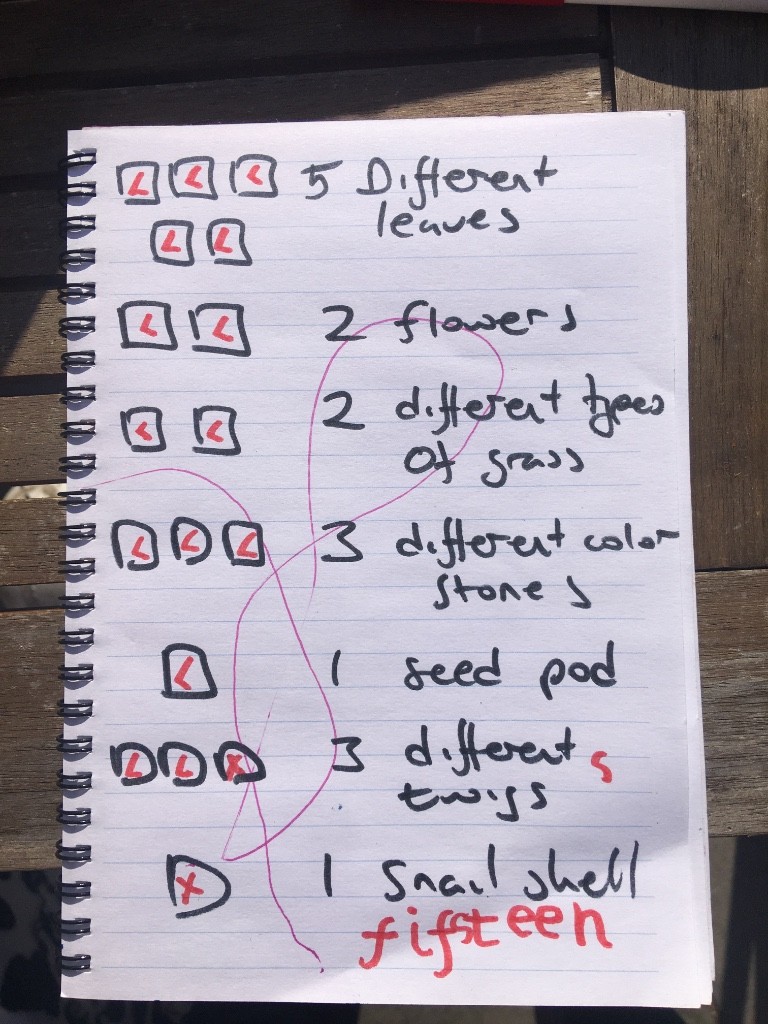 5 Different
leaves
2 flowers
2 different types
of grass
3 different color
stones
1 seed pod
3 different s
twigs
1 Snail shell
fifsteen